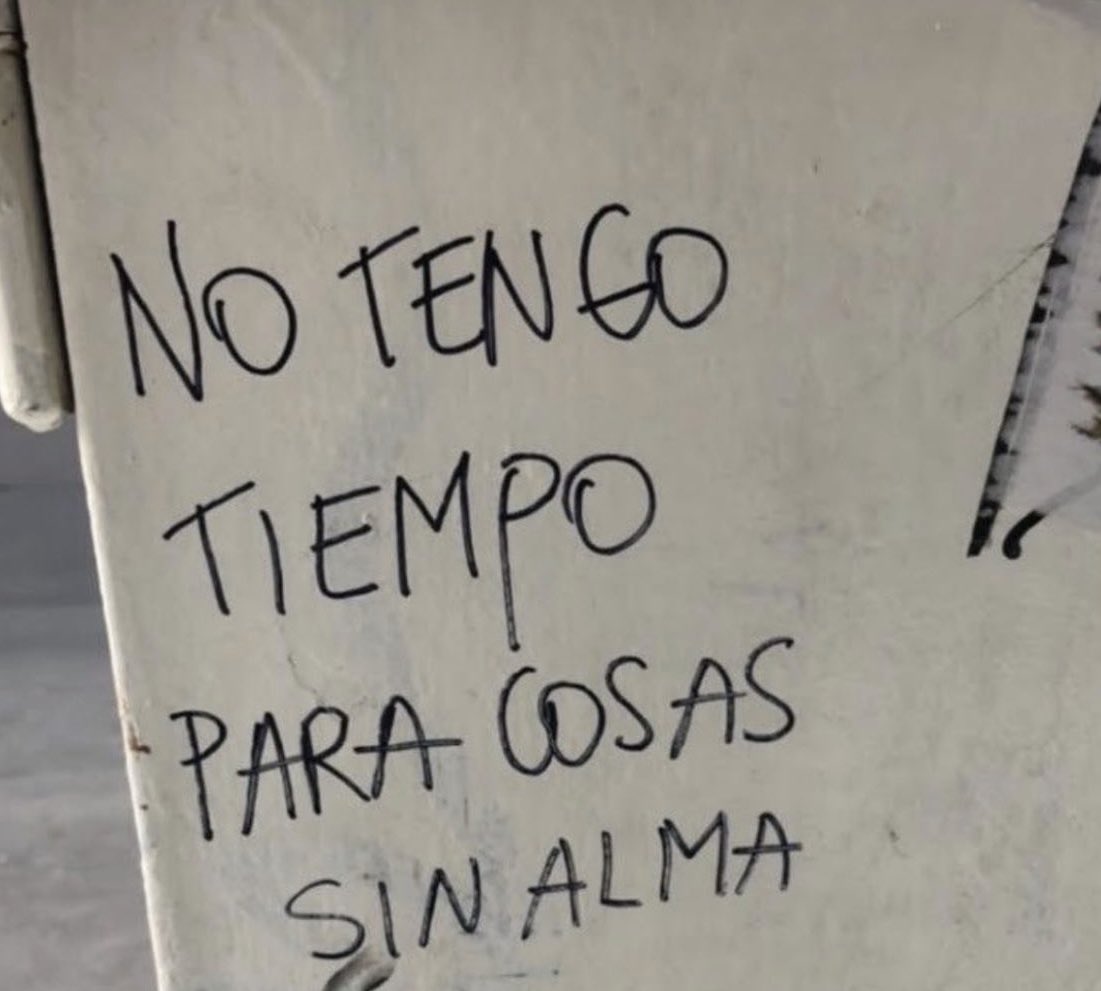 NO TENGO
TIEMPO
PARA COSAS
SIN ALMA